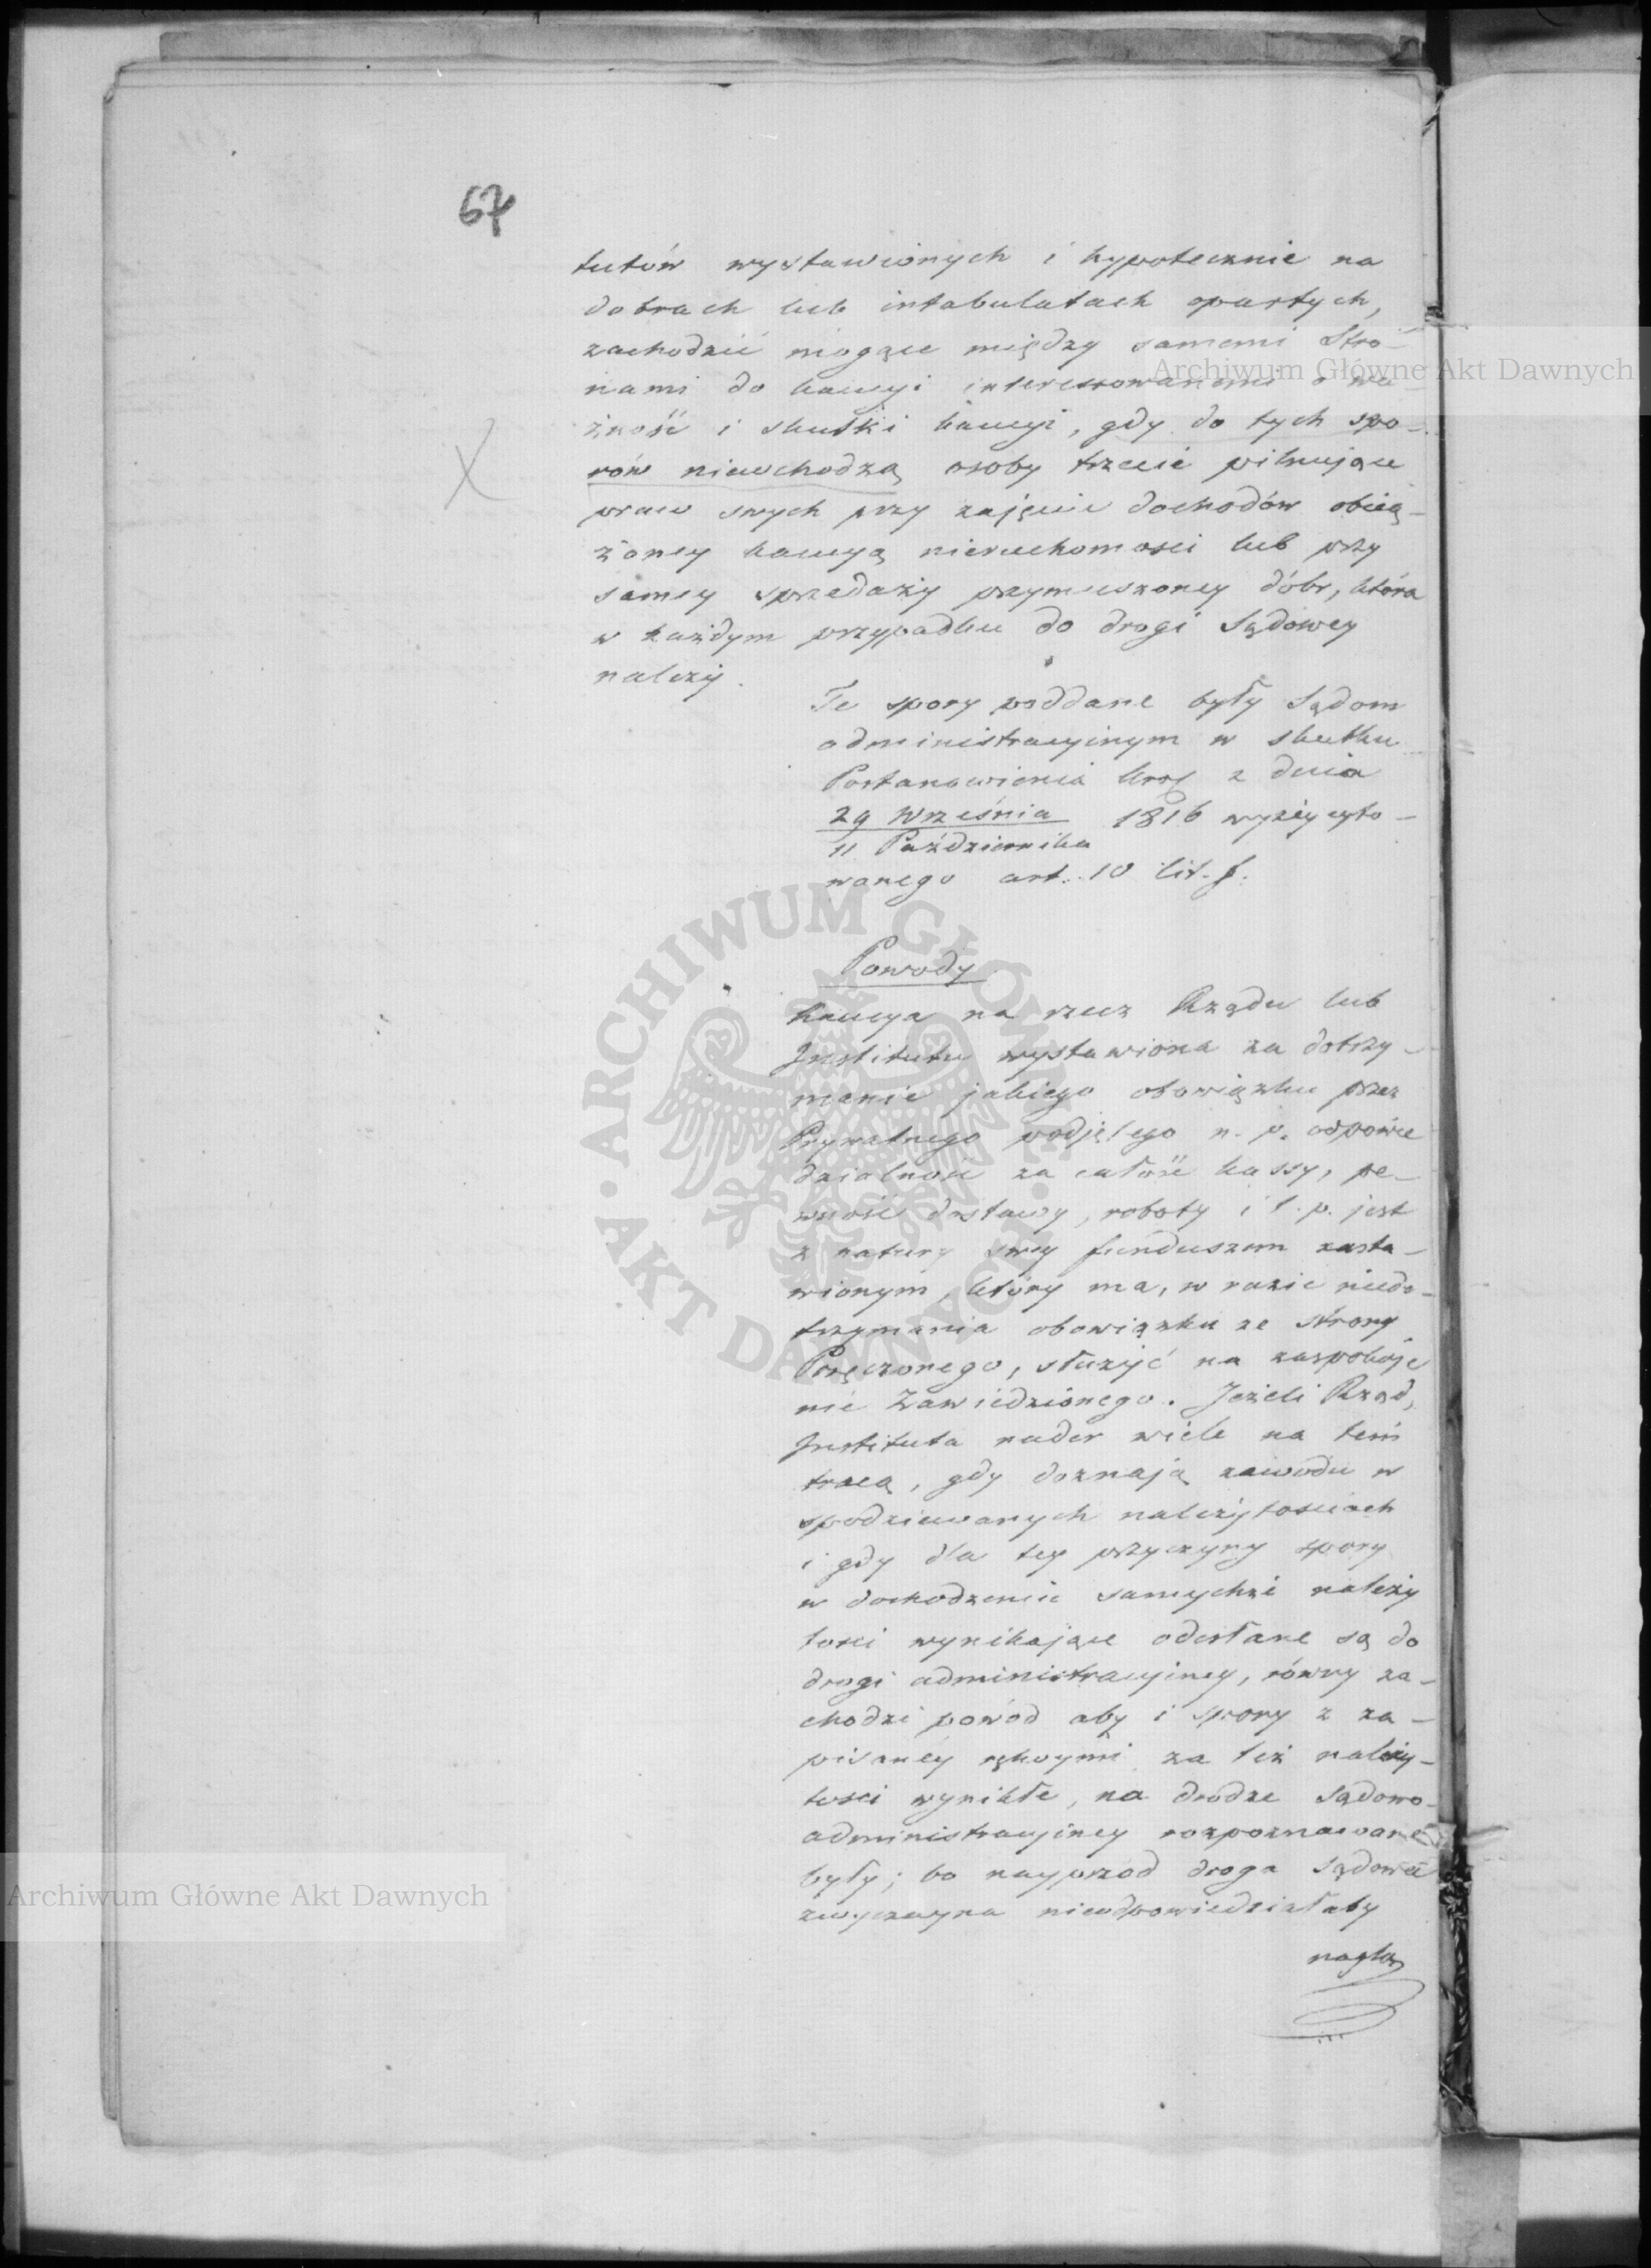 67
tutów wystawionych i hypotecznie na
dobrach lub intabulatach opartych,
zachodzić mogące między samemi Stro-
nami do kaucyi interessowanemi o wa-
żność i skutki kaucyi, gdy do tych spo-
rów niewchodzą osoby trzecie pilnujące
praw swych przy zajęciu dochodów obcią-
żoney kaucyą nieruchomosci lub przy
samey sprzedaży przymuszoney dóbr, która
w każdym przypadku do drogi Sądowey
należy.
Te spory poddane były Sądom
administracyinym w skutku
Postanowienia Król z dnia
29 Września 1816 wyżey cyto-
11 Października
wanego art. 10 lit. f.
Powody
Kaucya na rzecz Rządu lub
Institutu wystawiona za dotrzy-
manie jakiego obowiązku przez
Prywatnego podjętego n. p. odpowie
dzialność za całość kassy, pe-
wność dostawy, roboty i t. p. jest
z natury swey funduszem zasta-
wionym, który ma, w razie niedo-
trzymania obowiązku ze strony
Poręczonego, służyć na zaspokoje
nie Zawiedzionego. Jeżeli Rząd,
Instituta nader wiele na tem
tracą, gdy doznają zawodu w
spodziewanych należytosciach
i gdy dla tey przyczyny spory
w dochodzeniu samychże należy
tosci wynikające odesłane są do
drogi administracyiney, równy za-
chodzi powód aby i spory z za-
pisaney rękoymi za też należy-
tosci wynikłe, na drodze Sądowo-
administracyiney rozpoznawane
były; bo nayprzod droga Sądowa
zwyczayna nieodpowiedziałaby
nagłą
Archiwum Główne Akt Dawnych
Archiwum Główne Akt Dawnych
ARCHIWUM GŁÓWNE · AKT DAWNYCH ·